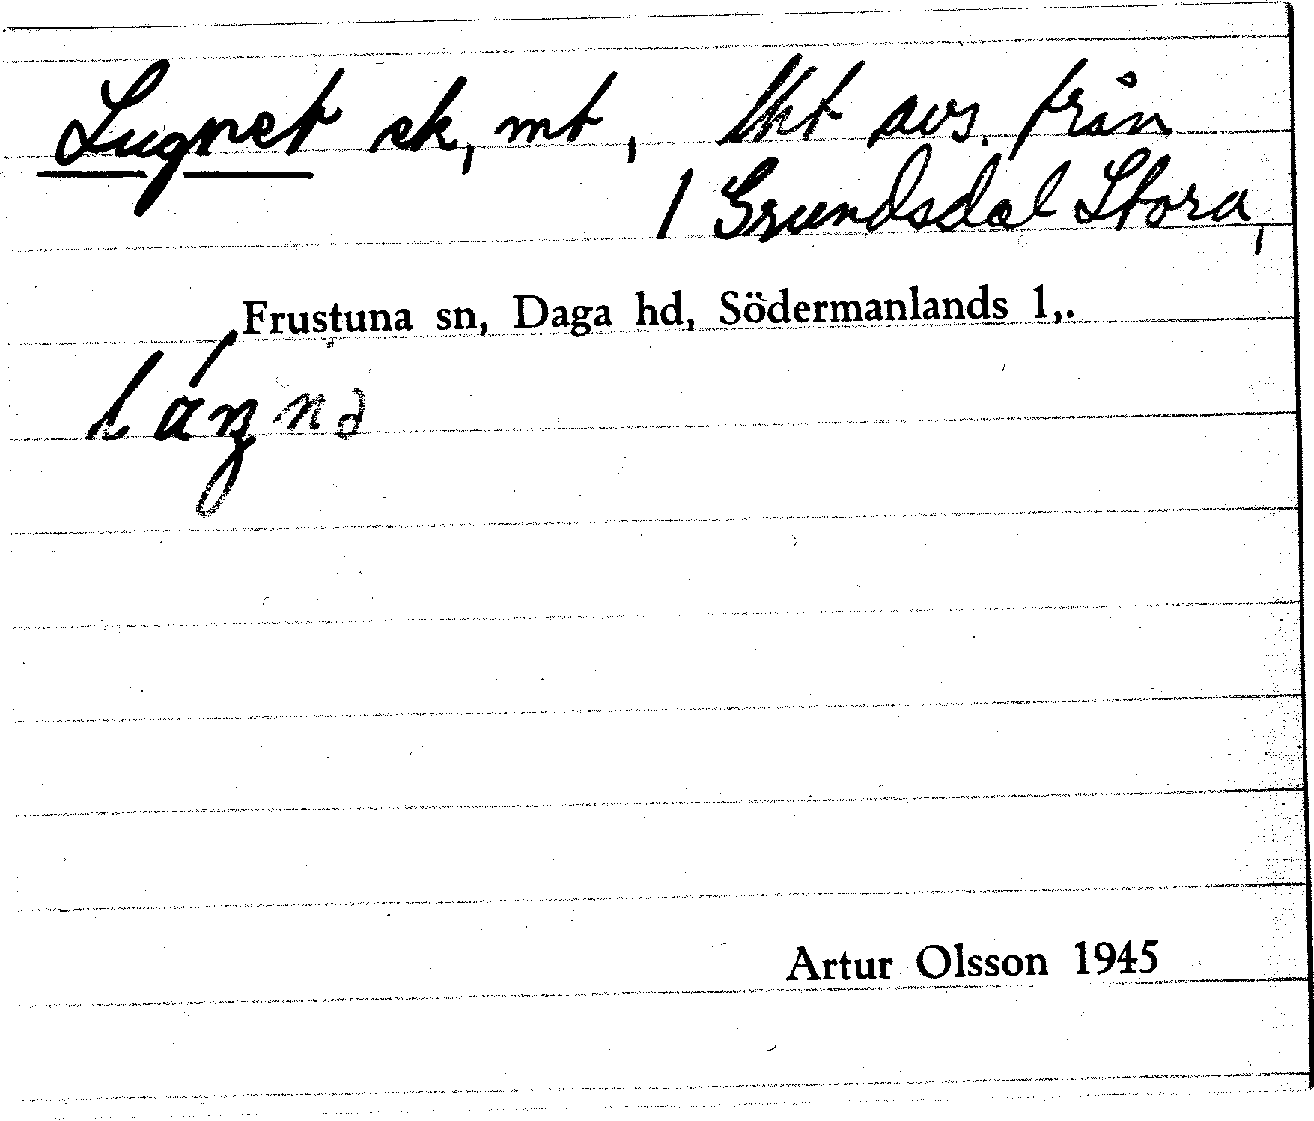 Lugnet ek, mt, lht avs. från
1 Grundsdal Stora,
Frustuna sn, Daga hd, Södermanlands l,.
Artur Olsson 1945